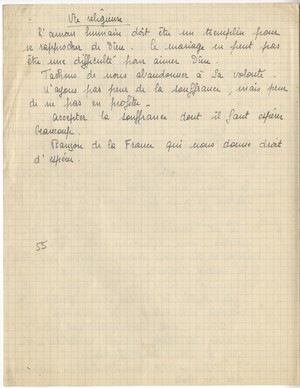 Vie religieuse
L'amour humain doit être un tremplin pour
se rapprocher de Dieu. Le mariage ne peut pas
être une difficulté pour aimer Dieu.
Tâchons de nous abandonner à Sa volonté.
N'ayons pas peur de la souffrance, mais peur
de ne pas en profiter.
Accepter la souffrance dont il faut espérer
beaucoup.
Rançon de la France qui nous donne droit
d'espérer.
55